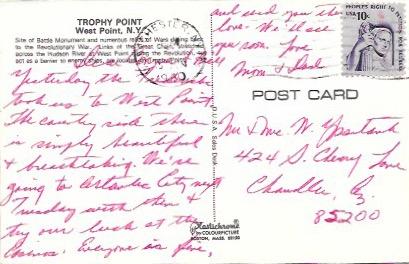 TROPHY POINT
West Point, N.Y.
Site of Battle Monument and numerous relics of Wars dating back
to the Revolutionary War. Links of the Great Chain, stretched
across the Hudson River at West Point during the Revolution, to
act as a barrier to enemy ships, are located at Trophy Point.
Yesterday the
took us to West Point.
The country side there
is simply beautiful
& breathtaking. We're
going to Atlantic City next
Tuesday with them &
try our luck at the
Casinos. Everyone is fine,
and send you their
love. We'll see
you soon. Love
Mom & Dad
PEOPLE'S RIGHT TO
USA 10c
POST CARD
Mr & Mrs W.
424 S. Cherry
Chandler,
85200
Plastichrome
by COLOURPICTURE
BOSTON, MASS. 02130